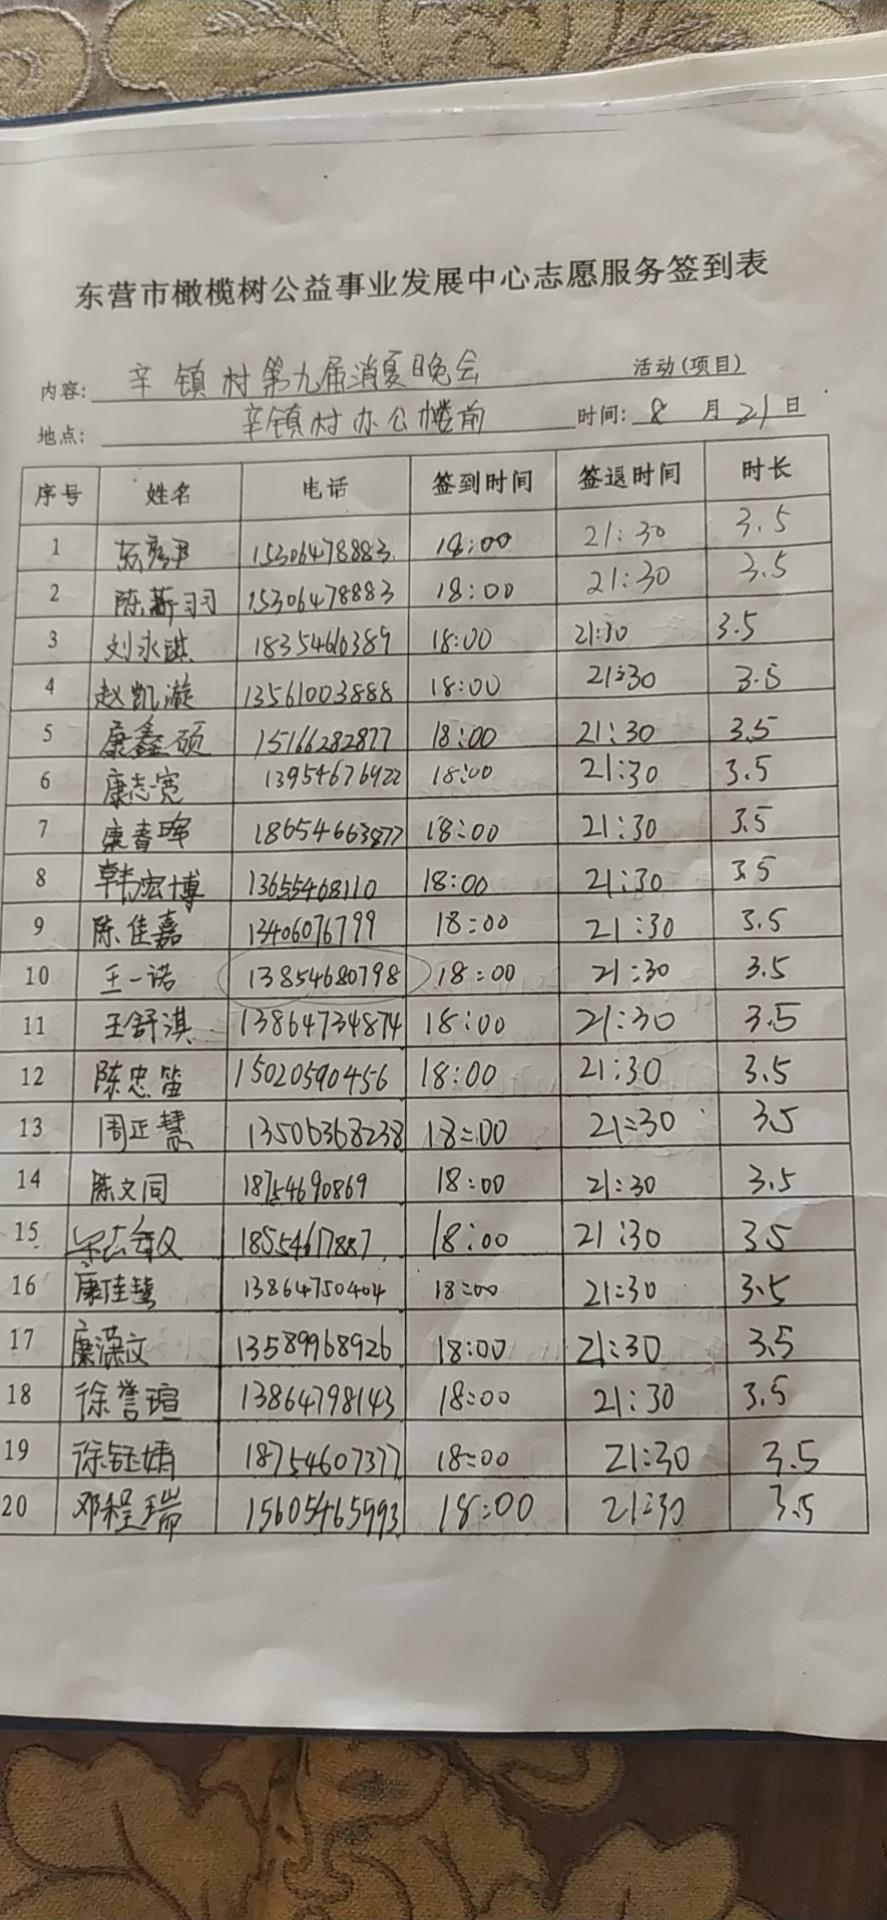 东营市橄榄树公益事业发展中心志愿服务签到表
内容: 辛镇村第九届消夏晚会 活动(项目)
地点: 辛镇村办公楼前 时间: 8月21日
序号 姓名 电话 签到时间 签退时间 时长
1 15306478883 18:00 21:30 3.5
2 陈新羽 15306478883 18:00 21:30 3.5
3 刘永祺 18354610389 18:00 21:30 3.5
4 赵凯漩 13561003888 18:00 21:30 3.5
5 康鑫硕 15166282877 18:00 21:30 3.5
6 康志宽 13954676922 18:00 21:30 3.5
7 康春晖 18654663877 18:00 21:30 3.5
8 韩宏博 13655468110 18:00 21:30 3.5
9 陈佳嘉 13406076799 18:00 21:30 3.5
10 王一诺 13854680798 18:00 21:30 3.5
11 王舒淇 13864734874 18:00 21:30 3.5
12 陈忠笛 15020590456 18:00 21:30 3.5
13 周正慧 13506368238 18:00 21:30 3.5
14 陈文同 18754690869 18:00 21:30 3.5
15 18554617887 18:00 21:30 3.5
16 康佳慧 13864750404 18:00 21:30 3.5
17 康潇文 13589968926 18:00 21:30 3.5
18 徐誉瑄 13864798143 18:00 21:30 3.5
19 徐钰婧 18754607377 18:00 21:30 3.5
20 邓程瑞 15605465993 18:00 21:30 3.5